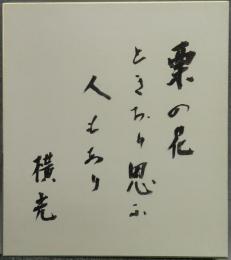 栗の花
ときおり思ふ
人もあり
横虎